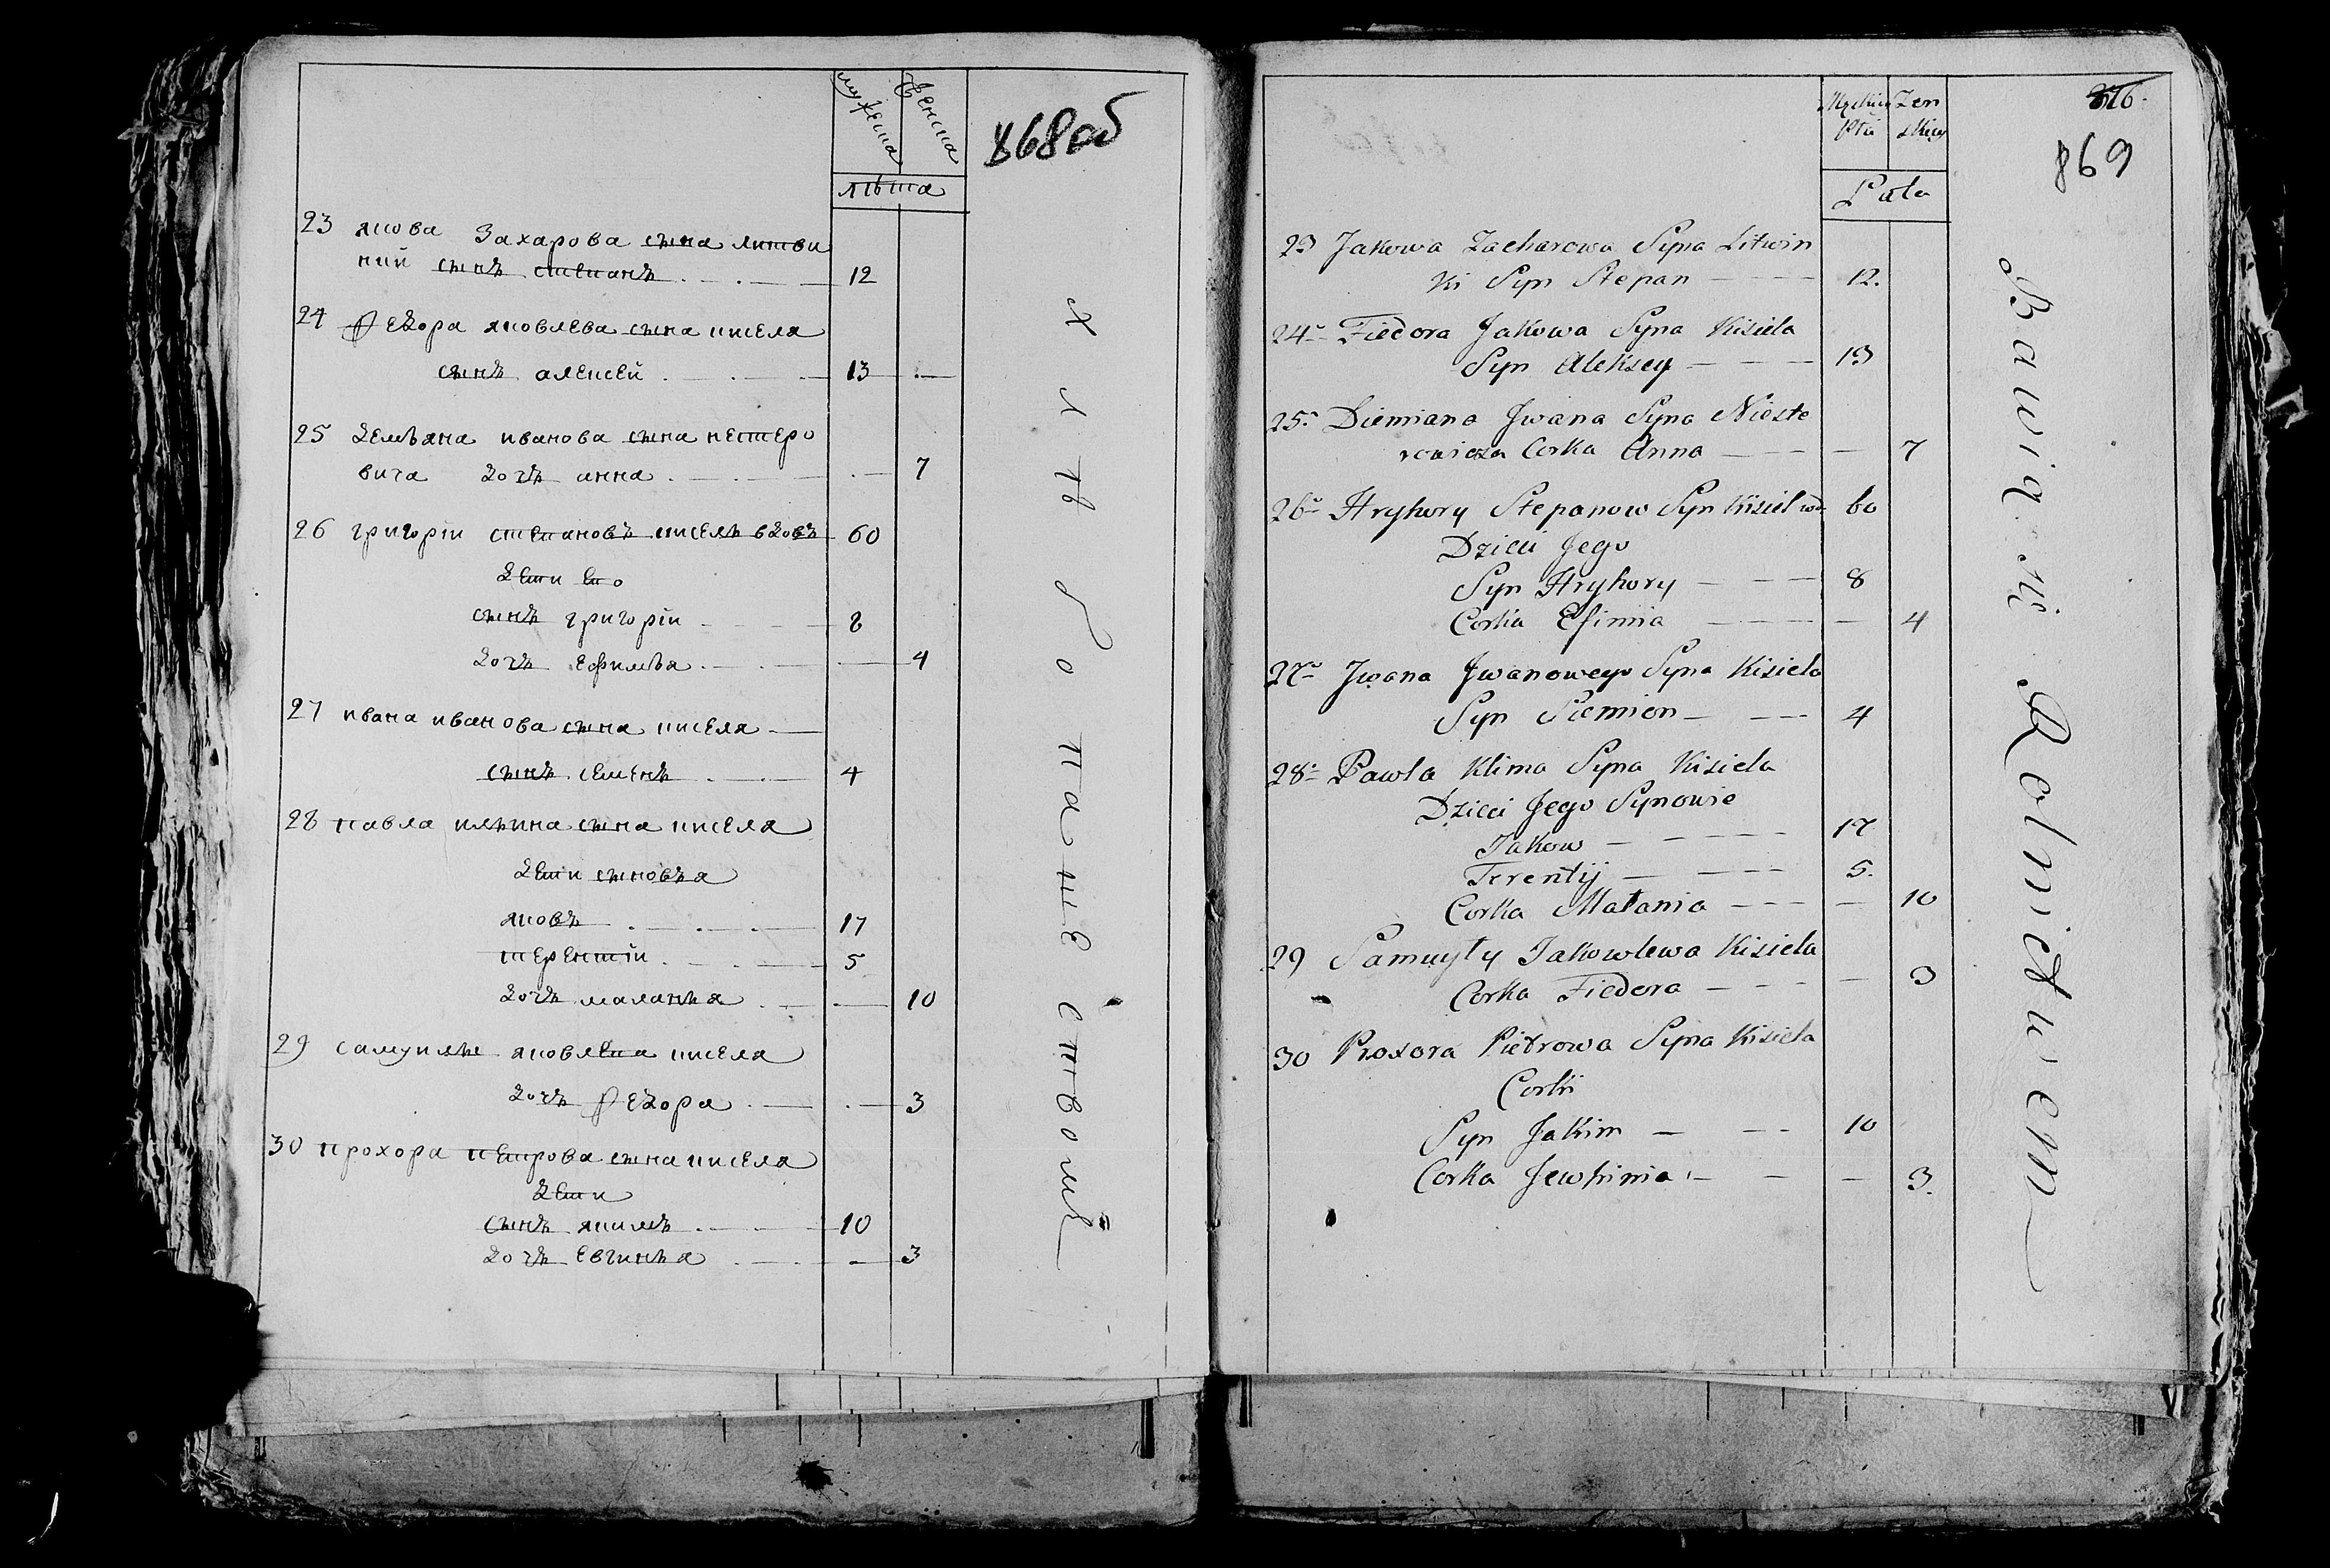 мужеска
женска
868об
лѣта
23 якова Захарова сына литви
ний сынъ степанъ 12
24 Федора яковлева сына киселя
сынъ алексей 13
25 демьяна иванова сына нестеро
вича дочь анна 7
26 григорій степановъ кисель вдовъ 60
дети его
сынъ григорій 8
дочь ефимья 4
27 ивана иванова сына киселя
сынъ семенъ 4
28 павла ильина сына киселя
дети сыновья
яковъ 17
терентій 5
дочь маланья 10
29 самуилы яковлева киселя
дочь Федора 3
30 прохора петрова сына киселя
дети
сынъ якимъ 10
дочь евгинья 3
хлѣбопашествомъ
Męzkiey Płci
Zen skiey
876.
869
Lata
23 Jakowa Zacharowa Syna Litwin
ki Syn Stepan 12.
24 Fiedora Jakowa Syna Kisiela
Syn Aleksey 13
25 Diemiana Jwana Syna Nieste
rowicza Corka Anna 7
26 Hryhory Stepanow Syn Kisiel wd. 60
Dzieci Jego
Syn Hryhory 8
Corka Efimia 4
27 Jwana Jwanowego Syna Kisiela
Syn Siemion 4
28 Pawla Klima Syna Kisiela
Dzieci Jego Synowie
Jakow 17
Terentij 5.
Corka Małania 10
29 Samuyły Jakowlewa Kisiela
Corka Fiedora 3
30 Proxora Pietrowa Syna Kisiela
Corki
Syn Jakim 10
Corka Jewhinia 3.
Bawią się Rolnictwem